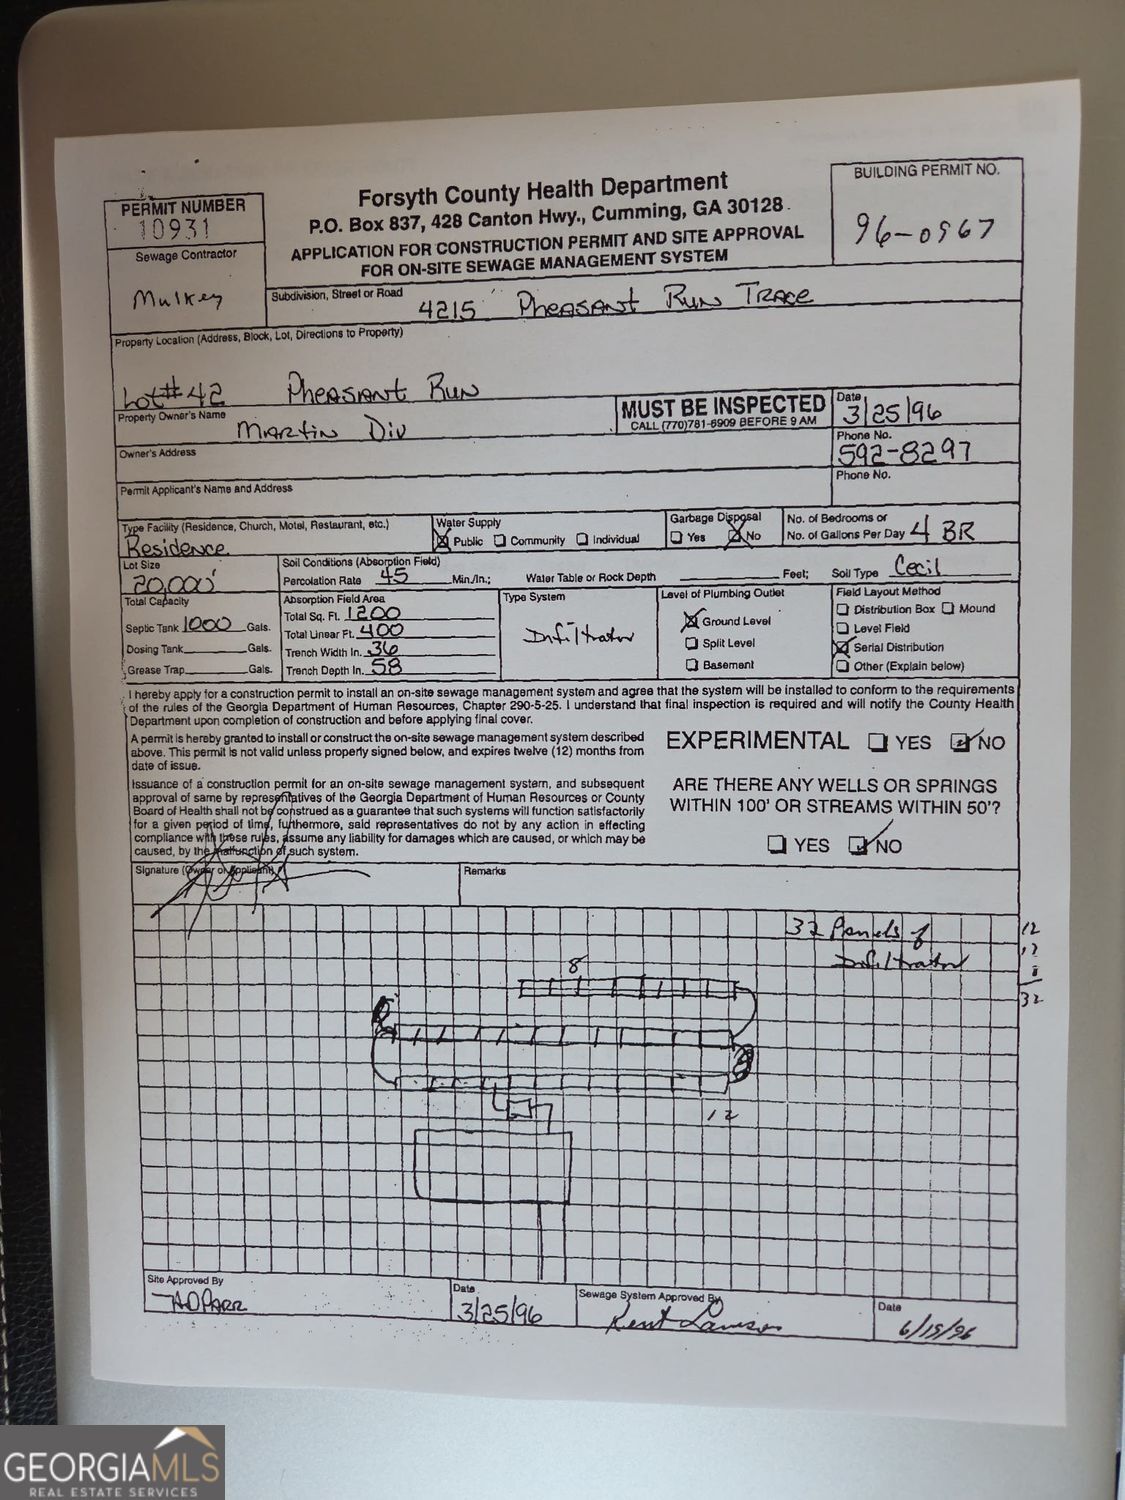 Forsyth County Health Department
P.O. Box 837, 428 Canton Hwy., Cumming, GA 30128
APPLICATION FOR CONSTRUCTION PERMIT AND SITE APPROVAL
FOR ON-SITE SEWAGE MANAGEMENT SYSTEM
PERMIT NUMBER
10931
BUILDING PERMIT NO.
96-0967
Sewage Contractor
Mulkey
Subdivision, Street or Road
4215 Pheasant Run Trace
Property Location (Address, Block, Lot, Directions to Property)
Lot# 42 Pheasant Run
Property Owner's Name
Martin Div
MUST BE INSPECTED
CALL (770)781-6909 BEFORE 9 AM
Date
3/25/96
Owner's Address
Phone No.
592-8297
Permit Applicant's Name and Address
Phone No.
Type Facility (Residence, Church, Motel, Restaurant, etc.)
Residence
Water Supply
Public Community Individual
Garbage Disposal
Yes No
No. of Bedrooms or
No. of Gallons Per Day 4 BR
Lot Size
20,000'
Soil Conditions (Absorption Field)
Percolation Rate 45 Min./In.; Water Table or Rock Depth Feet; Soil Type Cecil
Total Capacity
Septic Tank 1000 Gals.
Dosing Tank Gals.
Grease Trap Gals.
Absorption Field Area
Total Sq. Ft. 1200
Total Linear Ft. 400
Trench Width In. 36
Trench Depth In. 58
Type System
Infiltrator
Level of Plumbing Outlet
Ground Level
Split Level
Basement
Field Layout Method
Distribution Box Mound
Level Field
Serial Distribution
Other (Explain below)
I hereby apply for a construction permit to install an on-site sewage management system and agree that the system will be installed to conform to the requirements
of the rules of the Georgia Department of Human Resources, Chapter 290-5-25. I understand that final inspection is required and will notify the County Health
Department upon completion of construction and before applying final cover.
A permit is hereby granted to install or construct the on-site sewage management system described
above. This permit is not valid unless properly signed below, and expires twelve (12) months from
date of issue.
EXPERIMENTAL YES NO
Issuance of a construction permit for an on-site sewage management system, and subsequent
approval of same by representatives of the Georgia Department of Human Resources or County
Board of Health shall not be construed as a guarantee that such systems will function satisfactorily
for a given period of time, furthermore, said representatives do not by any action in effecting
compliance with these rules, assume any liability for damages which are caused, or which may be
caused, by the malfunction of such system.
ARE THERE ANY WELLS OR SPRINGS
WITHIN 100' OR STREAMS WITHIN 50'?
YES NO
Signature (Owner or Applicant)
Remarks
32 Panels of
Infiltrator
12
12
8
32
8
12
Site Approved By
Date
3/25/96
Sewage System Approved By
Kent
Date
6/19/96
GEORGIAMLS
REAL ESTATE SERVICES